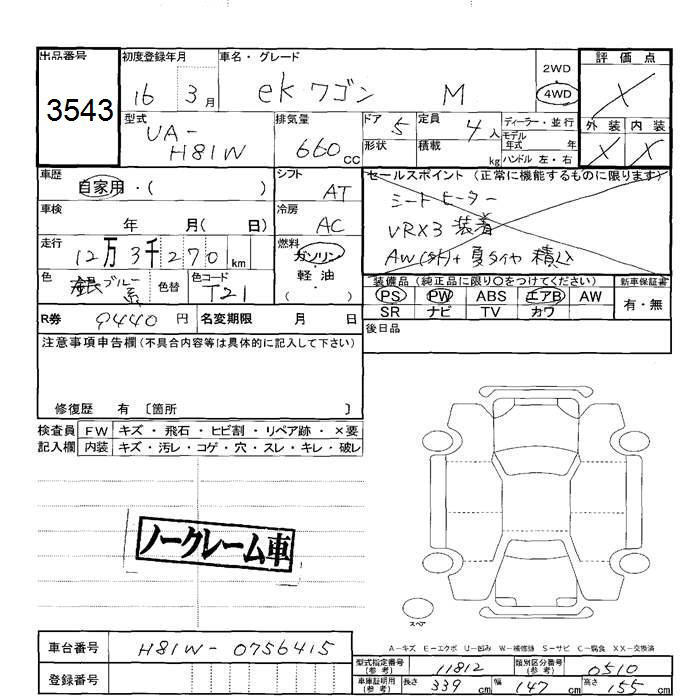 出品番号 初度登録年月 車名・グレード 2WD 評価点
3543 16 3月 ekワゴン M 4WD X
型式 排気量 ドア 5 定員 4人 ディーラー・並行 外装 内装
UA-H81W 660cc 形状 積載 kg モデル年式 年 X X
ハンドル 左・右
車歴 自家用・( ) シフト AT セールスポイント (正常に機能するものに限ります)
車検 年 月( 日) 冷房 AC シートヒーター
VRX3 装着
走行 12万3千270km 燃料 ガソリン・軽油・( ) AW(外)+夏タイヤ積込
色 銀ブルー系 色替 色コード T21 装備品 (純正品に限り○をつけてください) 新車保証書
PS PW ABS エアB AW 有・無
SR ナビ TV カワ
R券 9440円 名変期限 月 日 後日品
注意事項申告欄(不具合内容等は具体的に記入して下さい)
修復歴 有 〔箇所 〕
検査員 FW キズ・飛石・ヒビ割・リペア跡・×要
記入欄 内装 キズ・汚レ・コゲ・穴・スレ・キレ・破レ
ノークレーム車
スペア
A-キズ E-エクボ U-凹み W-補修跡 S-サビ C-腐食 XX-交換済
車台番号 H81W-0756415
登録番号
型式指定番号(参考) 11812 類別区分番号(参考) 0510
車庫証明用(参考) 長さ 339cm 幅 147cm 高さ 155cm